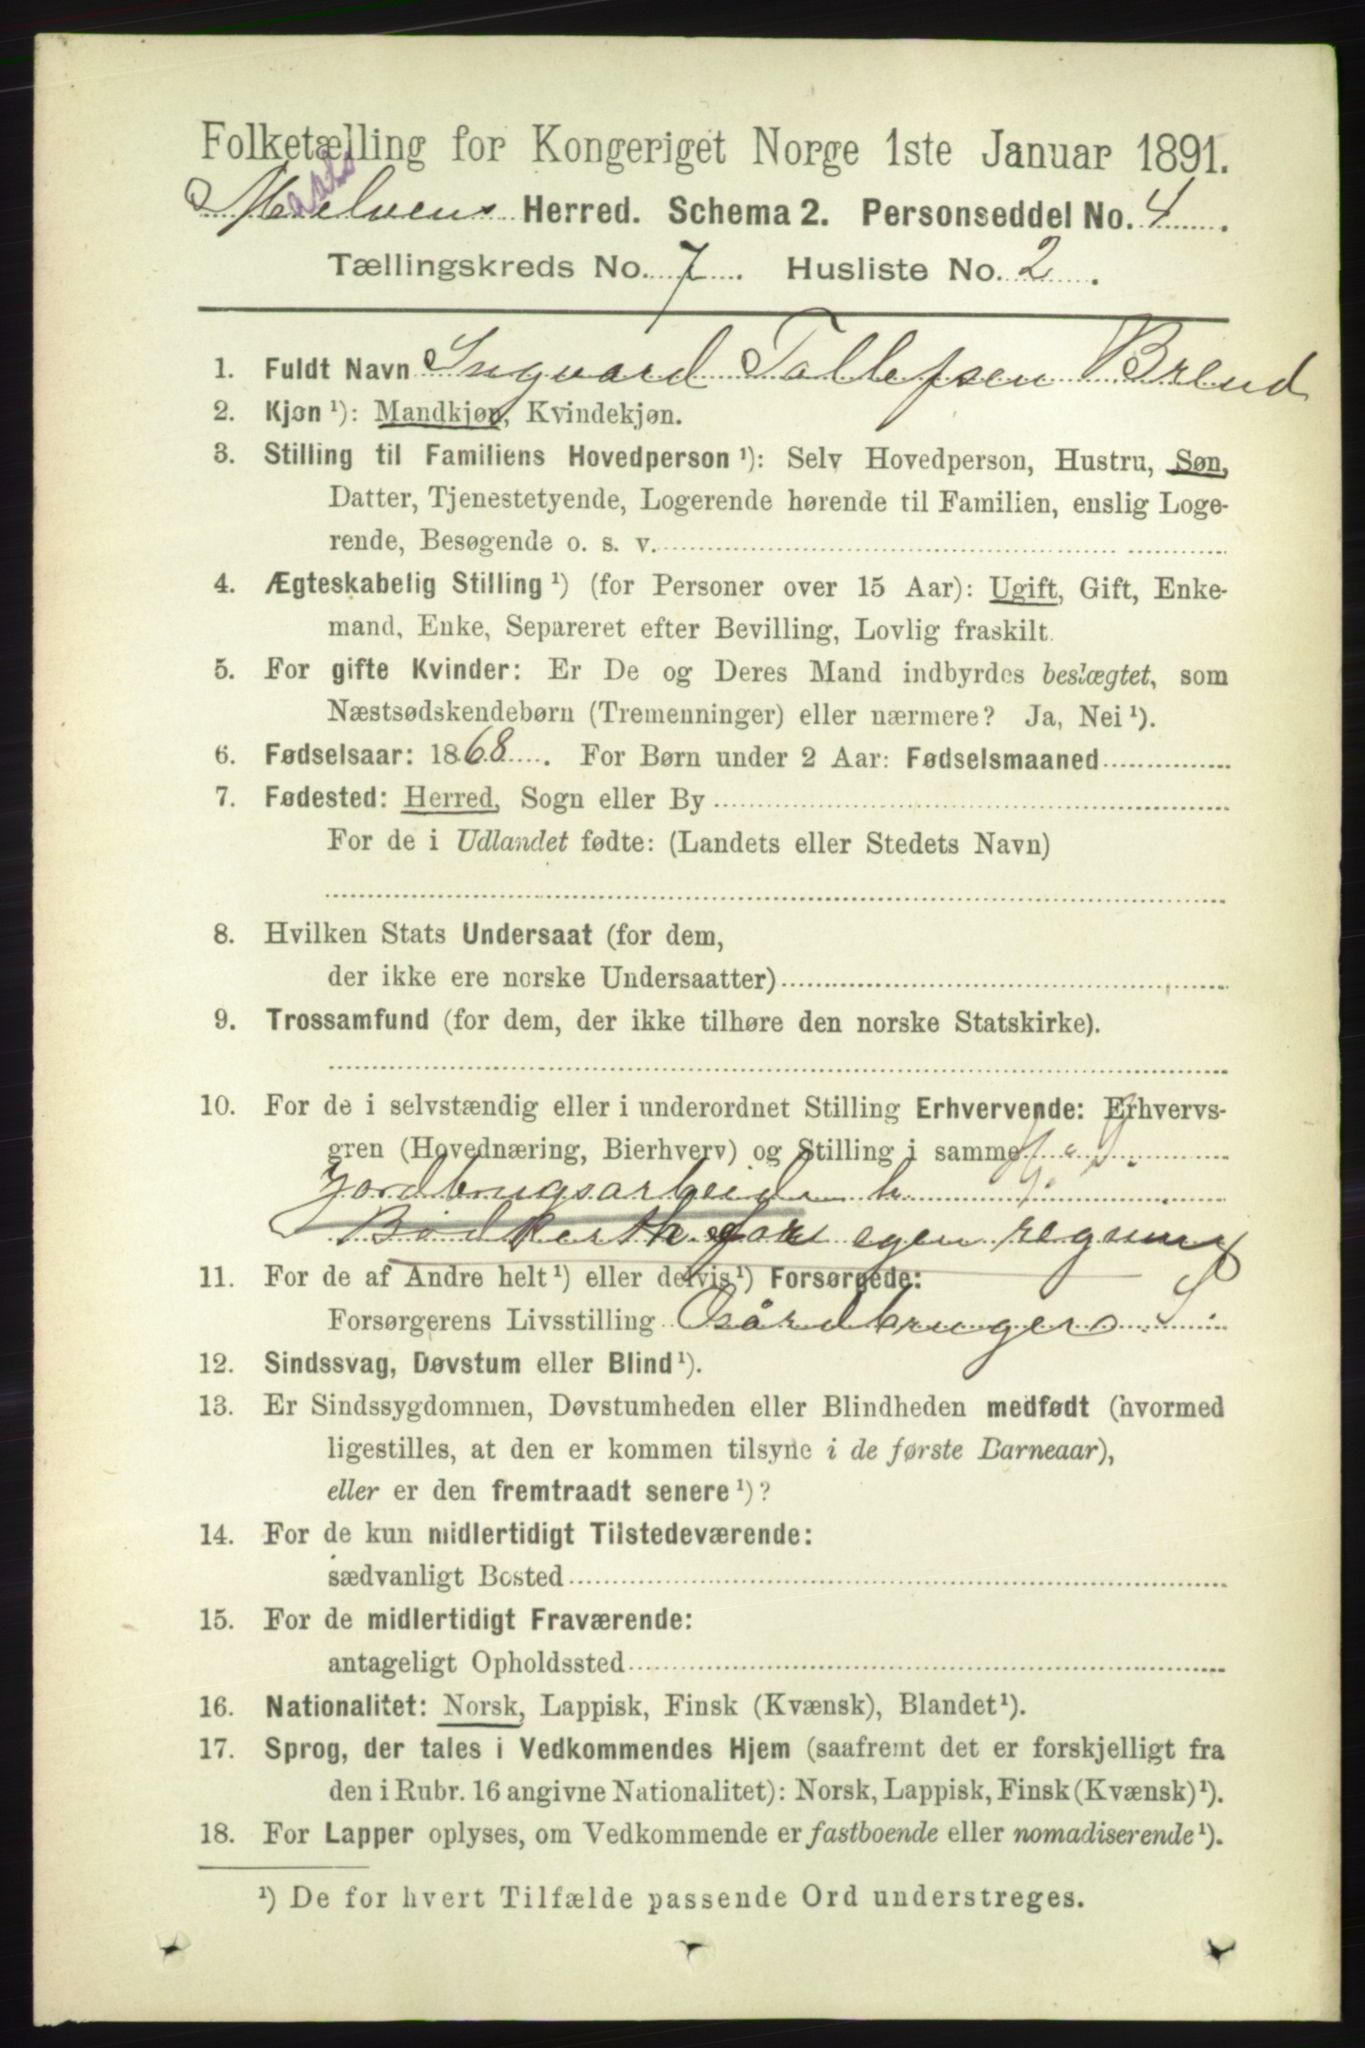 Folketælling for Kongeriget Norge 1ste Januar 1891.
Herred. Schema 2. Personseddel No. 4.
Tællingskreds No. 7. Husliste No. 2.
1. Fuldt Navn Ingvard Tollefsen Brend
2. Kjøn ¹): Mandkjøn, Kvindekjøn.
3. Stilling til Familiens Hovedperson ¹): Selv Hovedperson, Hustru, Søn,
Datter, Tjenestetyende, Logerende hørende til Familien, enslig Loge-
rende, Besøgende o. s. v.
4. Ægteskabelig Stilling ¹) (for Personer over 15 Aar): Ugift, Gift, Enke-
mand, Enke, Separeret efter Bevilling, Lovlig fraskilt.
5. For gifte Kvinder: Er De og Deres Mand indbyrdes beslægtet, som
Næstsødskendebørn (Tremenninger) eller nærmere? Ja, Nei ¹).
6. Fødselsaar: 1868. For Børn under 2 Aar: Fødselsmaaned
7. Fødested: Herred, Sogn eller By
For de i Udlandet fødte: (Landets eller Stedets Navn)
8. Hvilken Stats Undersaat (for dem,
der ikke ere norske Undersaatter)
9. Trossamfund (for dem, der ikke tilhøre den norske Statskirke).
10. For de i selvstændig eller i underordnet Stilling Erhvervende: Erhvervs-
gren (Hovednæring, Bierhverv) og Stilling i samme
Jordbrugsarbeide h
egen regning
11. For de af Andre helt ¹) eller delvis ¹) Forsørgede:
Forsørgerens Livsstilling Gårdbruger S.
12. Sindssvag, Døvstum eller Blind ¹).
13. Er Sindssygdommen, Døvstumheden eller Blindheden medfødt (hvormed
ligestilles, at den er kommen tilsyne i de første Barneaar),
eller er den fremtraadt senere ¹)?
14. For de kun midlertidigt Tilstedeværende:
sædvanligt Bosted
15. For de midlertidigt Fraværende:
antageligt Opholdssted
16. Nationalitet: Norsk, Lappisk, Finsk (Kvænsk), Blandet ¹).
17. Sprog, der tales i Vedkommendes Hjem (saafremt det er forskjelligt fra
den i Rubr. 16 angivne Nationalitet): Norsk, Lappisk, Finsk (Kvænsk) ¹).
18. For Lapper oplyses, om Vedkommende er fastboende eller nomadiserende ¹).
¹) De for hvert Tilfælde passende Ord understreges.